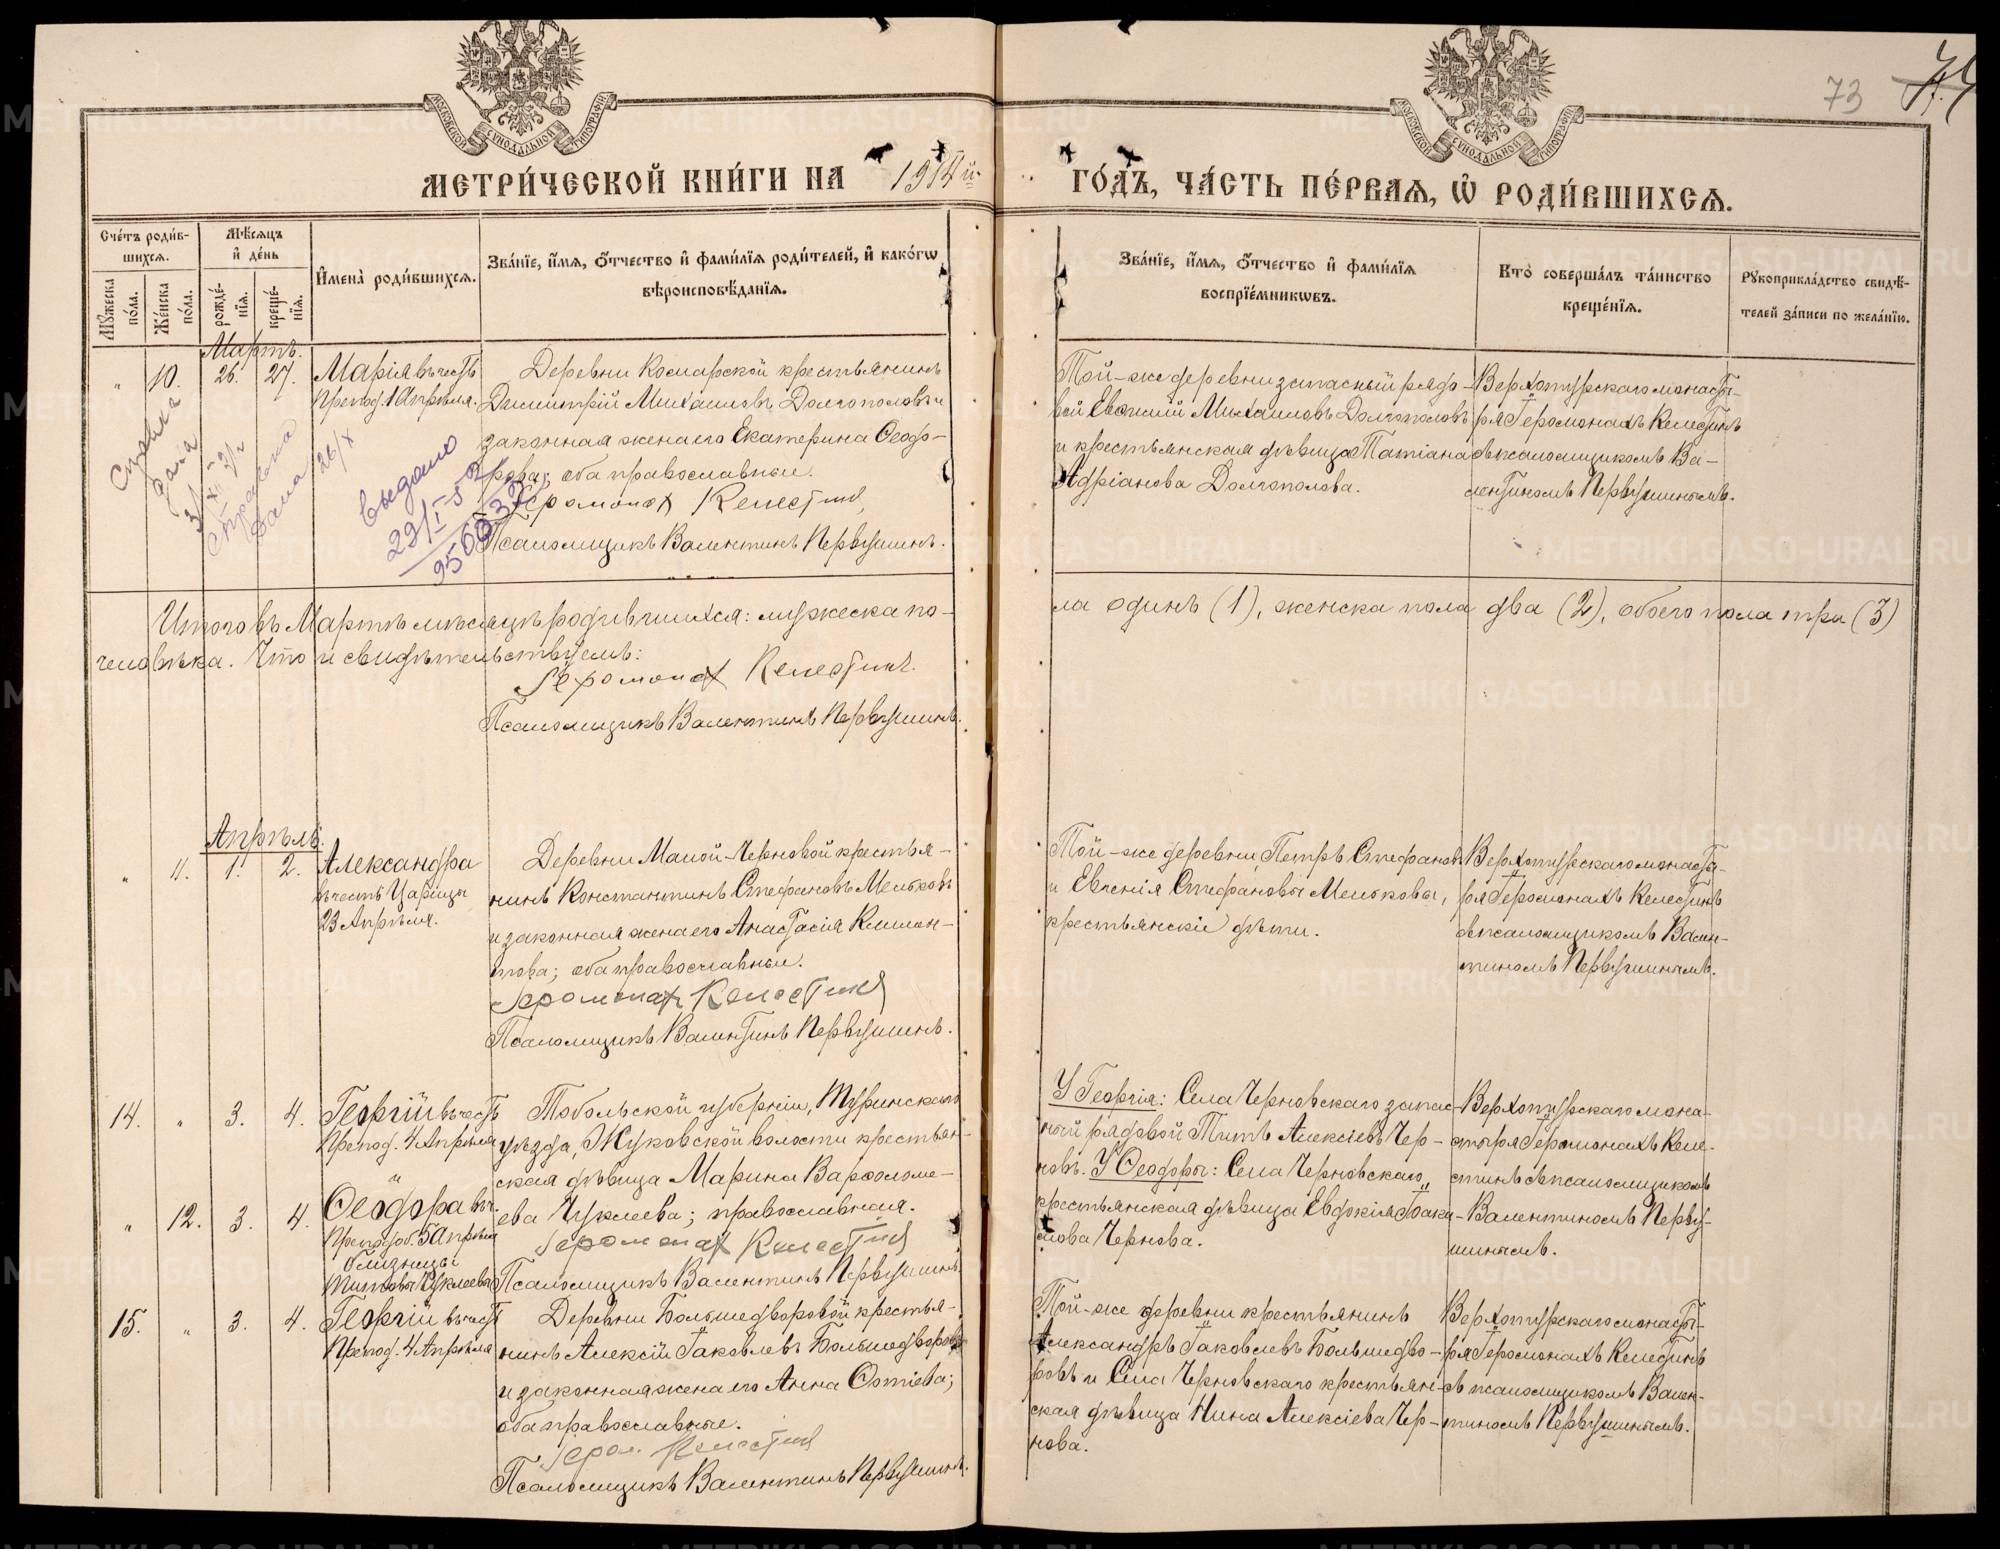 73
МОСКОВСКОЙ СѴНОДАЛЬНОЙ ТИПОГРАФІИ
МОСКОВСКОЙ СѴНОДАЛЬНОЙ ТИПОГРАФІИ
МЕТРИ́ЧЕСКОЙ КНИ́ГИ НА 1914й
ГО́ДЪ, ЧА́СТЬ ПЕ́РВАЯ, Ѡ РОДИ́ВШИХСЯ.
Сче́тъ роди́в-
шихся.
Му́жеска по́ла.
Же́нска по́ла.
Мѣ́сяцъ
и҆ де́нь
рожде́-
нїя.
креще́-
нїя.
И҆мена̀ роди́вшихся.
Зва́нїе, и҆́мя, ѻ҆́тчество и҆ фами́лїя роди́телей, и҆ како́гѡ
вѣроисповѣ́данїя.
Зва́нїе, и҆́мя, ѻ҆́тчество и҆ фами́лїя
воспрїе́мникѡвъ.
Кто̀ соверша́лъ та́инство
креще́нїя.
Рꙋкоприкла́дство свидѣ́-
телей за́писи по жела́нїю.
Мартъ.
" 10. 26. 27.
Марія въ честь
Препод. 1 Апрѣля.
Деревни Косларской крестьянинъ
Димитрій Михаиловъ Долгополовъ и
законная жена его Екатерина Ѳеодо-
рова; оба православные.
Іеромонах Келестин,
Псаломщикъ Валентинъ Первушинъ.
Справка
дана
Справка
дана 26/X
выдано
22/I-5
Той-же деревни запасный рядо-
вой Евгеній Михаиловъ Долгополовъ
и крестьянская дѣвица Татіана
Адріанова Долгополова.
Верхотурскаго монасты-
ря Іеромонахъ Келестинъ
съ псаломщикомъ Ва-
лентиномъ Первушинымъ.
Итого въ Мартѣ мѣсяцѣ родившихся: мужеска по-
ла одинъ (1), женска пола два (2), обоего пола три (3)
человѣка. Что и свидѣтельствуемъ:
Іеромонах Келестинъ.
Псаломщикъ Валентинъ Первушинъ.
Апрѣль.
" 11. 1. 2.
Александра
въ честь Царицы
23 Апрѣля.
Деревни Малой-Черновой крестья-
нинъ Константинъ Стефановъ Мельковъ
и законная жена его Анастасія Климен-
това; оба православные.
Іеромонах Келестин
Псаломщикъ Валентинъ Первушинъ.
Той-же деревни Петръ Стефановъ
и Евгенія Стефановы Мельковы,
крестьянскіе дѣти.
Верхотурскаго монасты-
ря Іеромонахъ Келестинъ
съ псаломщикомъ Вален-
тиномъ Первушинымъ.
14. " 3. 4.
Георгій въ честь
Препод. 4 Апрѣля
и
" 12. 3. 4.
Ѳеодора въ ч.
Преподоб. 5 Апрѣля
близнецы
Титовы Чуклеевы
Тобольской губерніи, Туринскаго
уѣзда, Жуковской волости крестьян-
ская дѣвица Марина Варѳоломе-
ева Чуклеева; православная.
Іеромонах Келестин
Псаломщикъ Валентинъ Первушинъ.
У Георгія: Села Черновскаго запас-
ный рядовой Титъ Алексіевъ Чер-
новъ. У Ѳеодоры: Села Черновскаго
крестьянская дѣвица Евдокія Іоаки-
мова Чернова.
Верхотурскаго мона-
стыря Іеромонахъ Келе-
стинъ съ псаломщикомъ
Валентиномъ Перву-
шинымъ.
15. " 3. 4.
Георгій въ честь
Препод. 4 Апрѣля
Деревни Большедворовой крестья-
нинъ Алексій Іаковлевъ Большедворовъ
и законная жена его Анна Фотіева;
оба православные.
Іером. Келестин
Псаломщикъ Валентинъ Первушинъ.
Той-же деревни крестьянинъ
Александръ Іаковлевъ Большедво-
ровъ и Села Черновскаго крестьян-
ская дѣвица Нина Алексіева Чер-
нова.
Верхотурскаго монасты-
ря Іеромонахъ Келестинъ
съ псаломщикомъ Вален-
тиномъ Первушинымъ.
METRIKI.GASO-URAL.RU